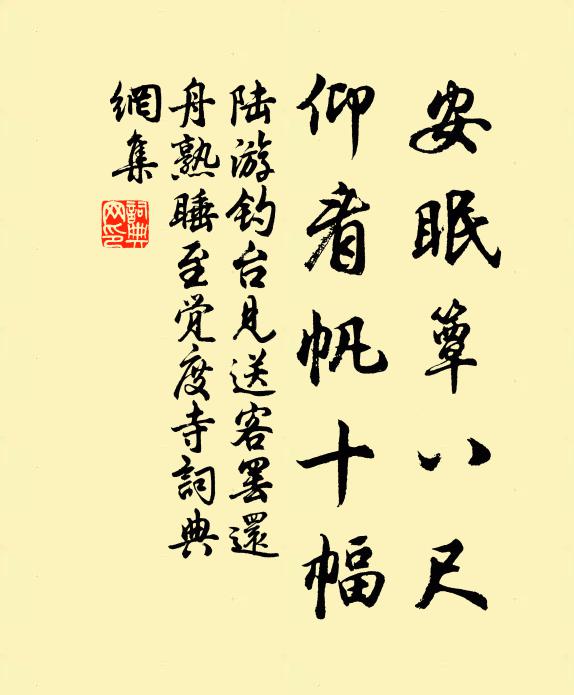 安眠簟八尺
仰看帆十幅
陆游钓台见送客罢还
舟熟睡至觉度寺詞典
網集
詞典
网印